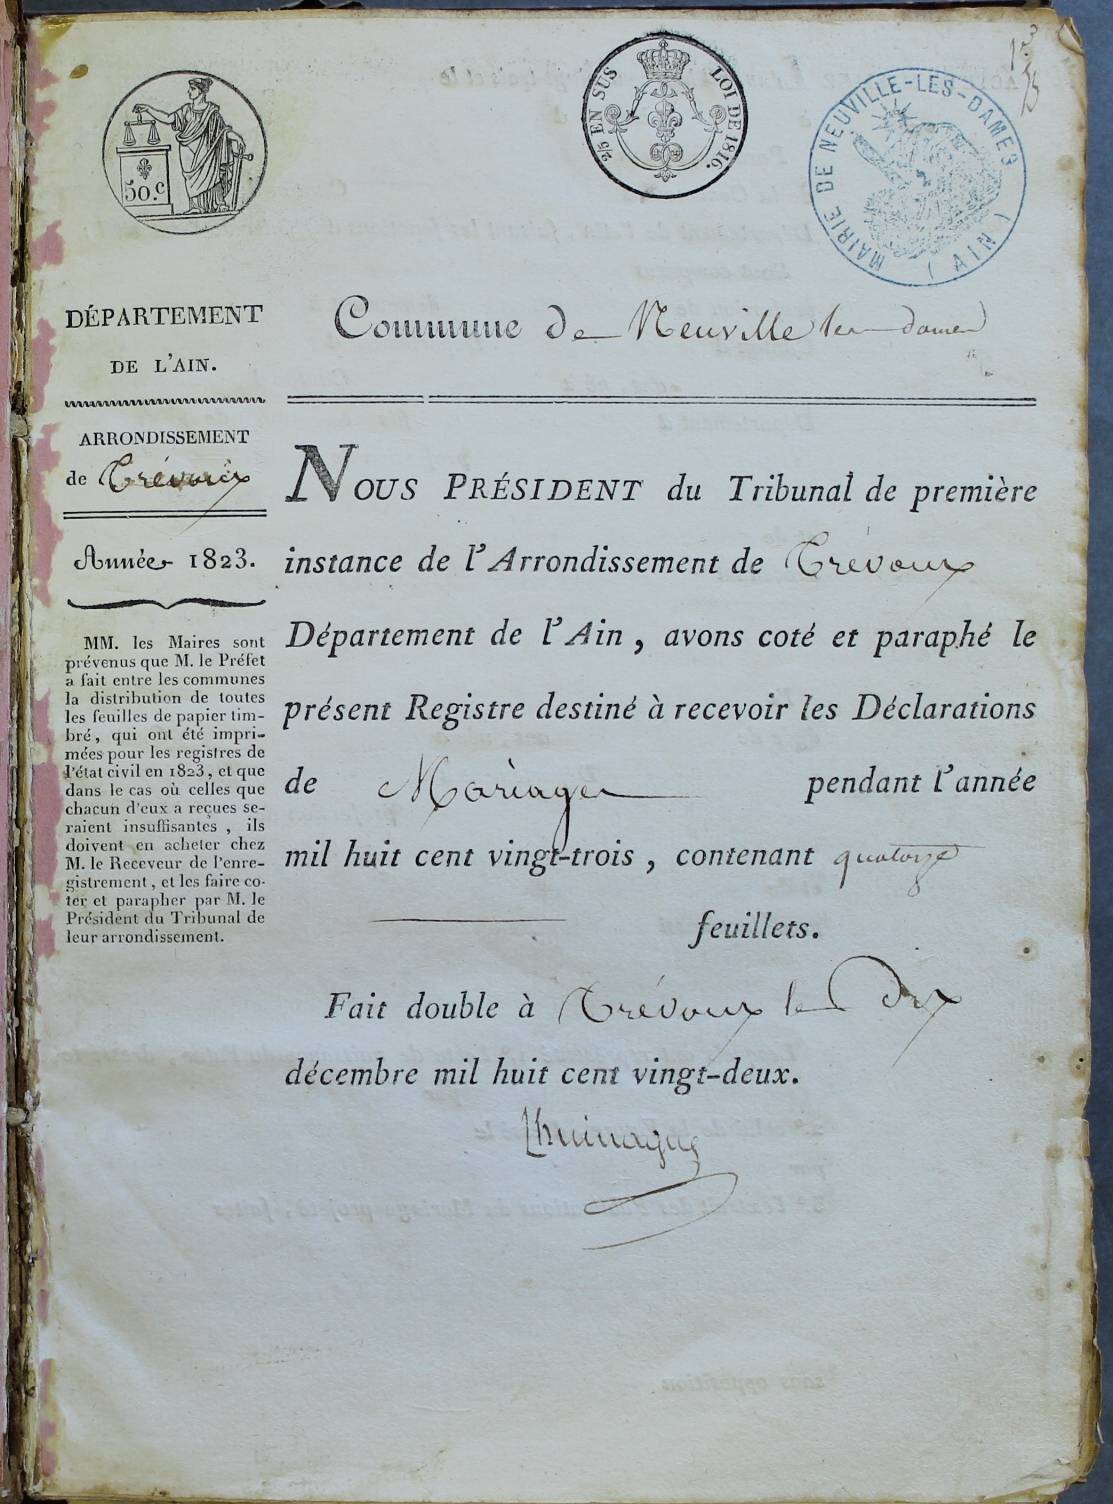 50.c
2/5 EN SUS LOI DE 1816.
MAIRIE DE NEUVILLE-LES-DAMES
( AIN )
DÉPARTEMENT
DE L'AIN.
ARRONDISSEMENT
de Trévoux
Année 1823.
MM. les Maires sont
prévenus que M. le Préfet
a fait entre les communes
la distribution de toutes
les feuilles de papier tim-
bré, qui ont été impri-
mées pour les registres de
l'état civil en 1823, et que
dans le cas où celles que
chacun d'eux a reçues se-
raient insuffisantes, ils
doivent en acheter chez
M. le Receveur de l'enre-
gistrement, et les faire co-
ter et parapher par M. le
Président du Tribunal de
leur arrondissement.
Commune de Neuville les dames
NOUS PRÉSIDENT du Tribunal de première
instance de l'Arrondissement de Trévoux
Département de l'Ain, avons coté et paraphé le
présent Registre destiné à recevoir les Déclarations
de Mariages pendant l'année
mil huit cent vingt-trois, contenant quatorze
feuillets.
Fait double à Trévoux le dix
décembre mil huit cent vingt-deux.